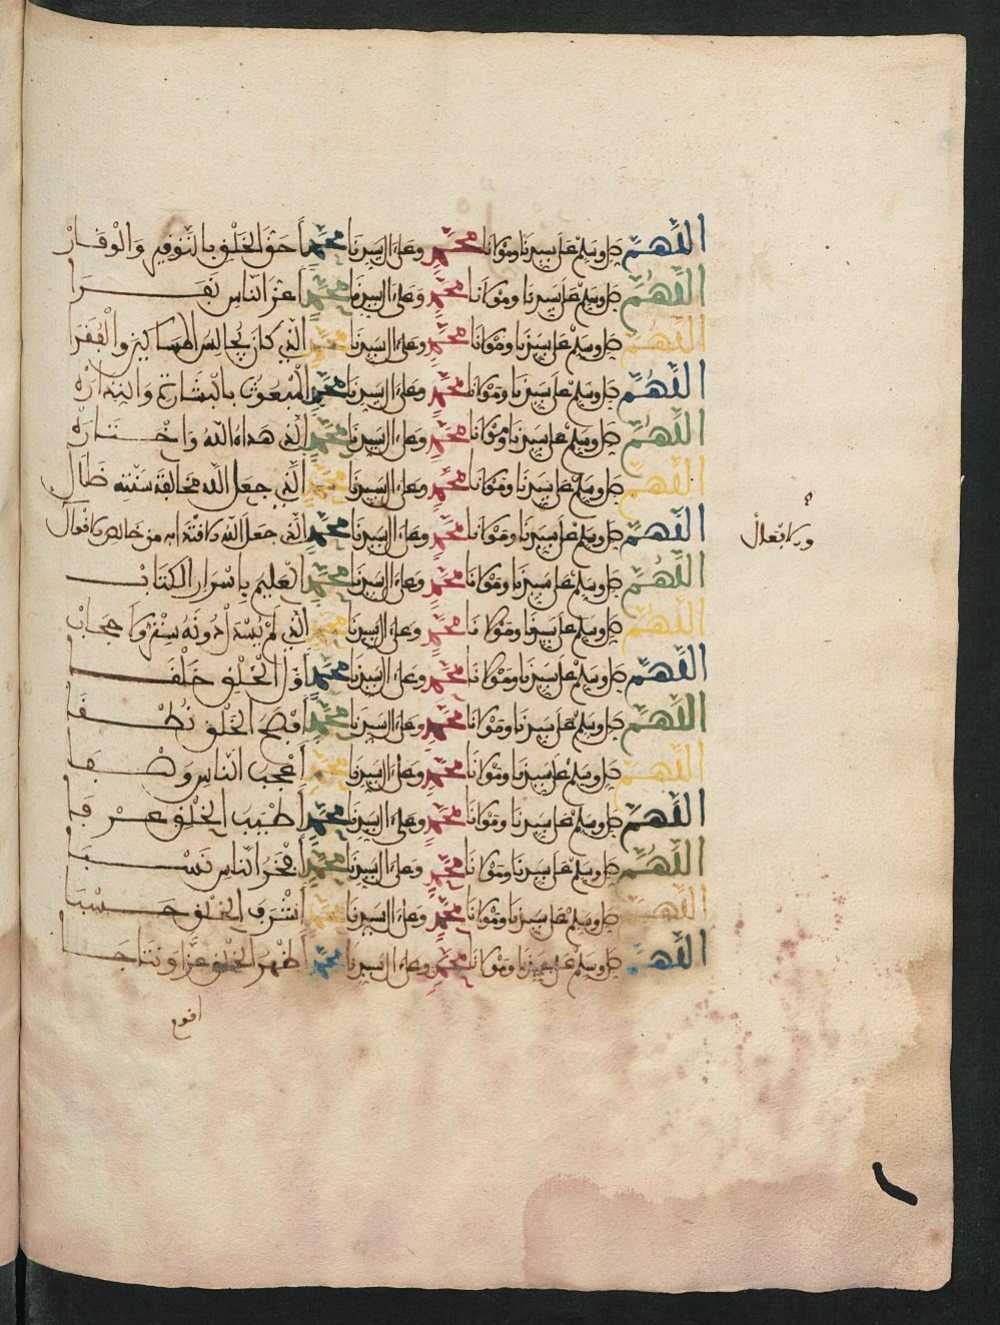 اللهم صل وسلم على سيدنا ومولانا محمد وعلى ال سيدنا محمد أحق الخلق بالتوقير والوقار
اللهم صل وسلم على سيدنا ومولانا محمد وعلى ال سيدنا محمد أعز الناس نفرا
اللهم صل وسلم على سيدنا ومولانا محمد وعلى ال سيدنا محمد الذي كان يجالس المساكين والفقرا
اللهم صل وسلم على سيدنا ومولانا محمد وعلى ال سيدنا محمد المبعوث بالبشارة والنذاره
اللهم صل وسلم على سيدنا ومولانا محمد وعلى ال سيدنا محمد الذي هداه الله واختاره
اللهم صل وسلم على سيدنا ومولانا محمد وعلى ال سيدنا محمد الذي جعل الله مخالفة سنته ضلال
اللهم صل وسلم على سيدنا ومولانا محمد وعلى ال سيدنا محمد الذي جعل الله الاقتداء به من خالص الاقوال
والافعال
اللهم صل وسلم على سيدنا ومولانا محمد وعلى ال سيدنا محمد العليم باسرار الكتاب
اللهم صل وسلم على سيدنا ومولانا محمد وعلى ال سيدنا محمد الذي لم يسدل دونه ستر ولا حجاب
اللهم صل وسلم على سيدنا ومولانا محمد وعلى ال سيدنا محمد أول الخلق خلقا
اللهم صل وسلم على سيدنا ومولانا محمد وعلى ال سيدنا محمد أفصح الخلق نطقا
اللهم صل وسلم على سيدنا ومولانا محمد وعلى ال سيدنا محمد أعجب الناس وصفا
اللهم صل وسلم على سيدنا ومولانا محمد وعلى ال سيدنا محمد أطيب الخلق عرفا
اللهم صل وسلم على سيدنا ومولانا محمد وعلى ال سيدنا محمد أفخر الناس نسبا
اللهم صل وسلم على سيدنا ومولانا محمد وعلى ال سيدنا محمد أشرف الخلق حسبا
اللهم صل وسلم على سيدنا ومولانا محمد وعلى ال سيدنا محمد أظهر الخلق عزا وتاجا
اقوم